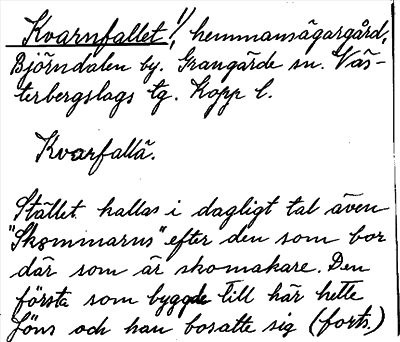 Kvarnfallet!, hemmansägargård,
Björndalen by. Grangärde sn. Väs-
terbergslags tg. Kopp l.
Kvarfallä.
Stället kallas i dagligt tal även
"Skommarns" efter den som bor
där som är skomakare. Den
första som byggde till här hette
Jöns och han bosatte sig (forts.)